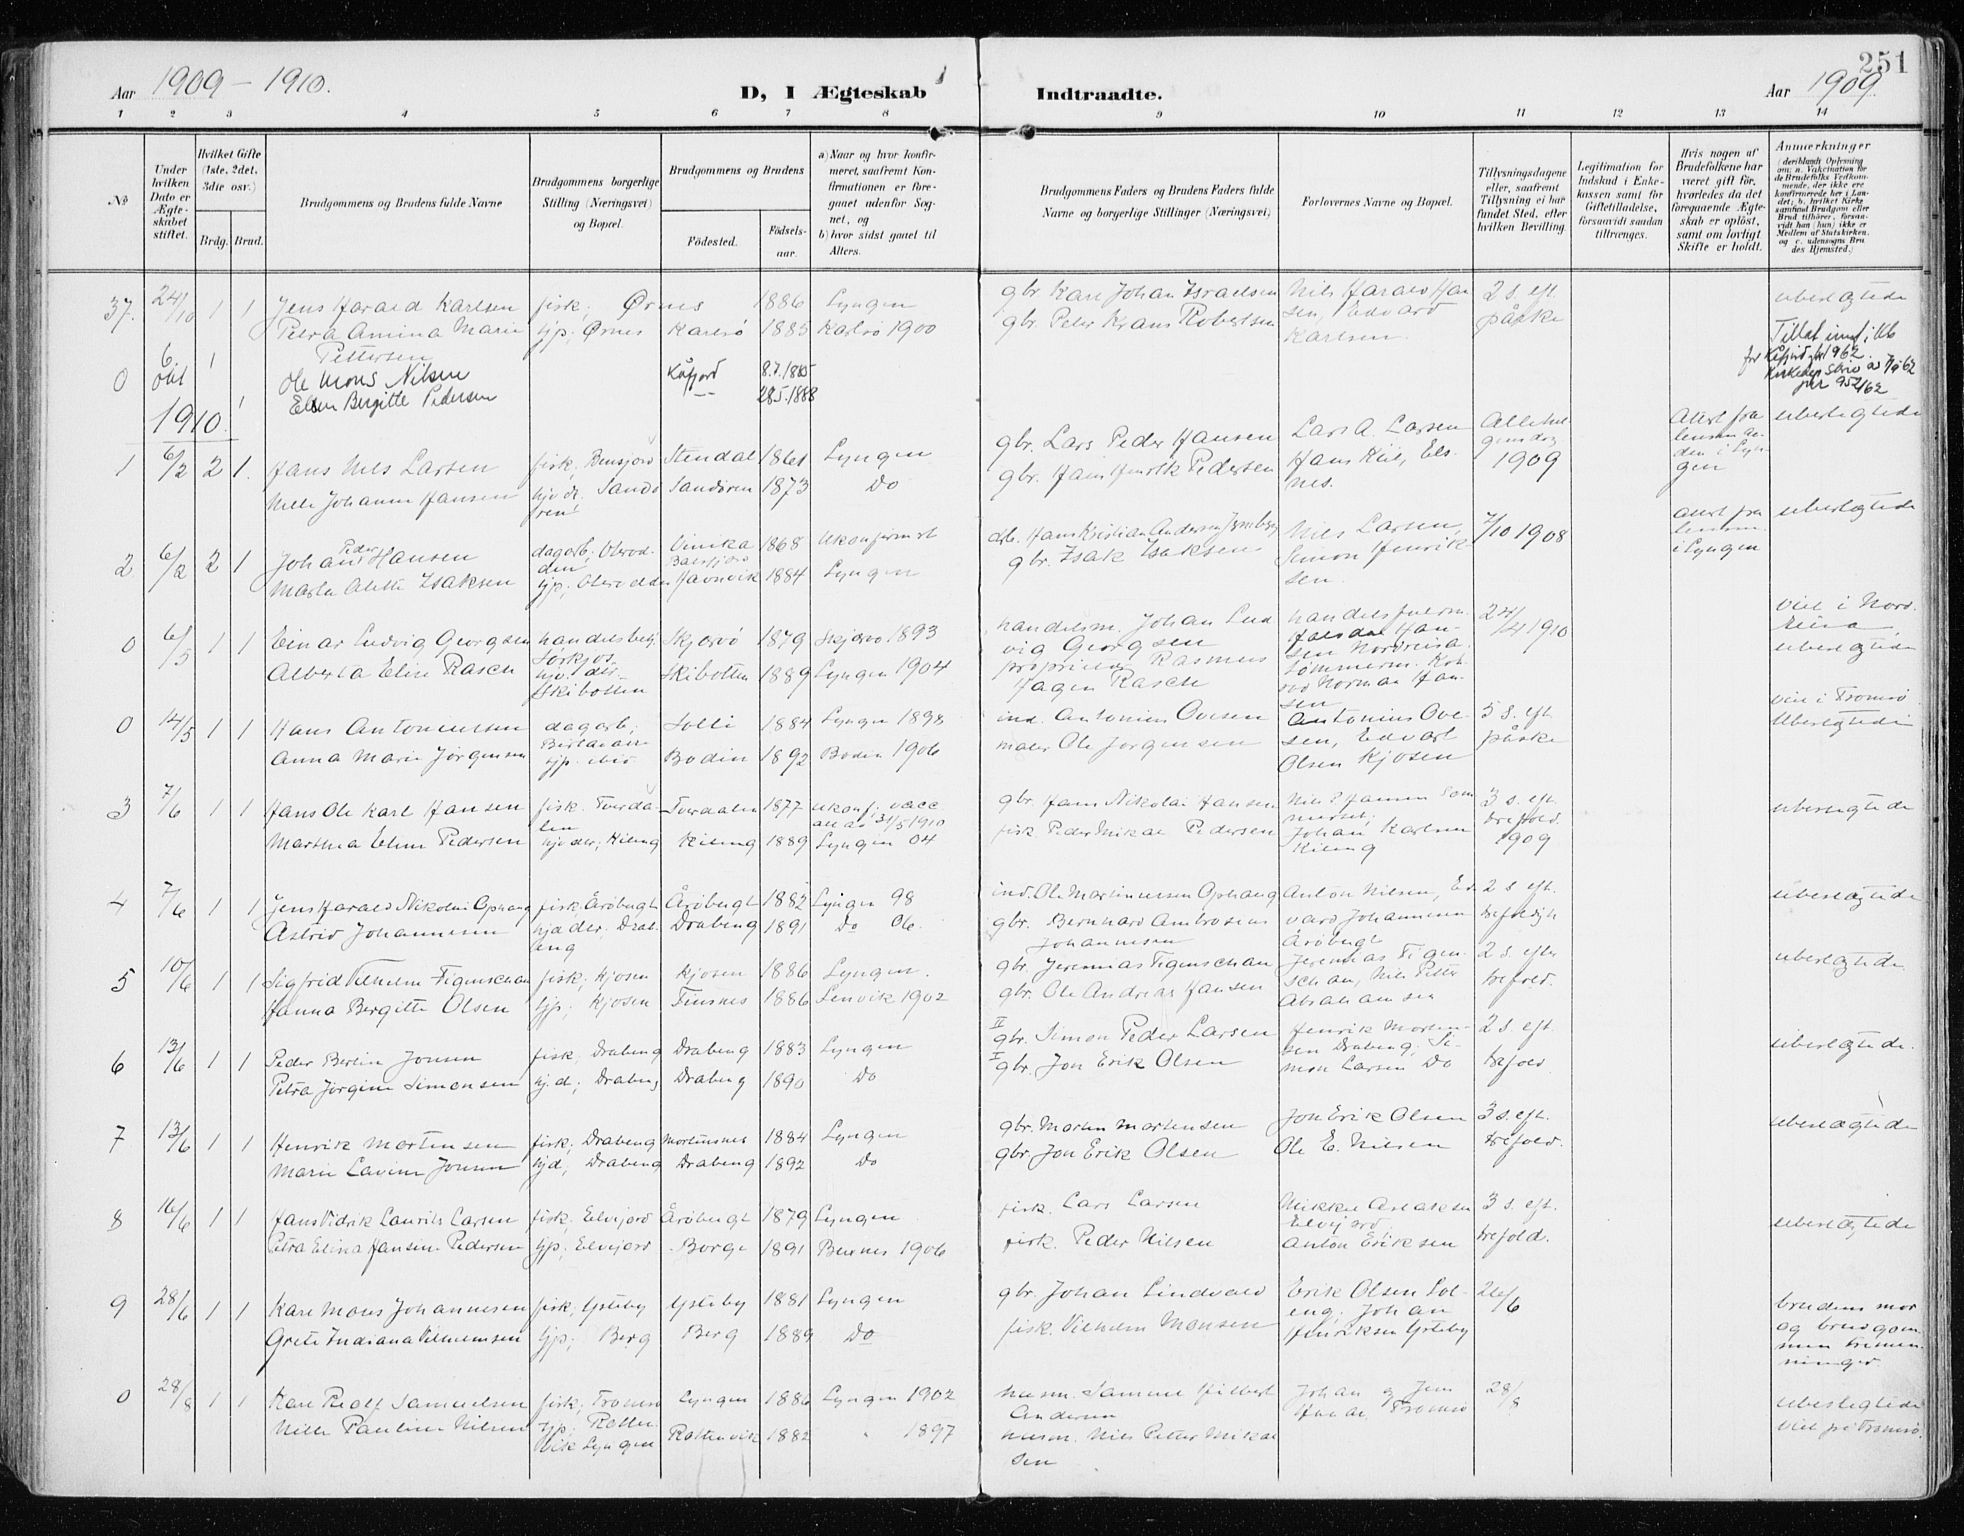 251
Aar 1909 - 1910.
D, I Ægteskab
Indtraadte.
Aar 1909
1 2 3 4 5 6 7 8 9 10 11 12 13 14
No
Under hvilken Dato er Ægteskabet stiftet.
Hvilket Gifte (1ste, 2det, 3die osv.)
Brdg. Brud.
Brudgommens og Brudens fulde Navne
Brudgommens borgerlige Stilling (Næringsvei) og Bopæl.
Brudgommens og Brudens
Fødested.
Fødselsaar.
a) Naar og hvor konfirmeret, saafremt Konfirmationen er foregaaet udenfor Sognet, og
b) hvor sidst gaaet til Alters.
Brudgommens Faders og Brudens Faders fulde Navne og borgerlige Stillinger (Næringsvei)
Forlovernes Navne og Bopæl.
Tillysningsdagene eller, saafremt Tillysning ei har fundet Sted, efter hvilken Bevilling.
Legitimation for Indskud i Enkekassen samt for Giftetilladelse, forsaavidt saadan tiltrænges.
Hvis nogen af Brudefolkene har været gift før, hvorledes da det foregaaende Ægteskab er opløst, samt om lovligt Skifte er holdt.
Anmerkninger
(deriblandt Oplysning om: a. Vakcination for de Brudefolks Vedkommende, der ikke ere konfirmerede her i Landet; b. hvilket Kirkesamfund Brudgom eller Brud tilhører, forsaavidt han (hun) ikke er Medlem af Statskirken, og c. udensogns Brudes Hjemsted.)
37. 24/10 1 1 Jens Harald Karlsen fisk; Ørnes 1886 Lyngen gbr. Karl Johan Israelsen Nils Harald Han 2 s. eft. ubeslægtede
Petra Amina Marie tjp; Ørnes Karlsø 1885 Karlsø 1900 gbr. Peter Krans Robertsen sen, Edvard påske
Pettersen Karlsen.
0 6. okt 1 Ole Mons Nilsen Kåfjord 8.7.1885
1 Ellen Bergitte Pedersen — 28.5.1888
1910.
1 6/2 2 1. Hans Nils Larsen fisk. Bensjord Stendal 1861 Lyngen gbr. Lars Peder Hansen Lars A. Larsen Allehel ubeslegtede
Nille Johanne Hansen Sandøren 1873 Do gbr. Hans Henrik Pedersen Hans Kiil, Elsnes. gensdag 1909
2 6/2 2 1 Johan Peder Hansen dagarb. 1868 Ukonfirmert Nils Larsen 7/10 1908 ubeslegtede
Marta Alette Isaksen Havnvik 1884 Lyngen gbr. Isak Isaksen Simon Henriksen.
0 6/5 1 1 Einar Ludvig Georgsen handelsbetj. Skjervø 1879 Skjervø 1893 handelsm. Johan Ludvig Georgsen 24/4 1910 viet i Nord-
Alberta Elise Rasch Skibotten Skibotten 1889 Lyngen 1904 proprietær Rasmus Hagen Rasch ubeslegtede
0 14/5 1 1 Hans Antoniussen dagarb; Solli 1884 Lyngen 1898 ind. Antonius Ovesen Antonius Ove- 5 s. eft. viet i Tromsø
Anna Marie Jørgensen Bodin 1892 Bodin 1906 maler Ole Jørgensen sen, Edvart påske Ubeslegtede
Olsen Kjosen
3 7/6 1 1 Hans Ole Karl Hansen fisk. Tverdalen Tverdalen 1877 ukonf. vacc gbr. Hans Nikolai Hansen 3 s. eft. ubeslegtede
31/5 1910
Marthea Eline Pedersen Kileng Kileng 1889 Lyngen 04 fisk. Peder Mikal Pedersen Johan Karlsen Kileng trefold. 1909
4 7/6 1 1 Jens Harald Nikolai Ophaug fisk; Årøbugt Årøbugt 1882 Lyngen 98 ind. Ole Martinussen Ophaug Anton Nilsen, Ed- 2 s. eft. ubeslegtede
Astrid Johannesen Drabeng Drabeng 1891 Do 06. gbr. Bernhard Ambrosius Johannesen vard Johannesen Årøbugt
5 10/6 1 1 Sigfrid Vilhelm Figenschau fisk; Kjosen Kjosen 1886 Lyngen. gbr. Jeremias Figenschau Jeremias Figen- 2 s. efter ubeslegtede
Hanna Bergitte Olsen tjp; Kjosen Finsnes 1886 Lenvik 1902 gbr. Ole Andreas Hansen schau, Nils Petter Abrahamsen trefold.
6 13/6 1 1 Peder Berlin Jonsen fisk; Drabeng Drabeng 1883 Lyngen II gbr. Simon Peder Larsen Henrik Morten- 2 s. eft. ubeslegtede.
Petra Jørgine Simonsen hj.d; Drabeng Drabeng 1890 Do I gbr. Jon Erik Olsen sen Drabeng; Simon Larsen Do trefold.
7 13/6 1 1 Henrik Mortensen fisk; Drabeng Mortensnes 1884 Lyngen gbr. Morten Mortensen Jon Erik Olsen 3 s. eft. ubeslægtede
Marie Lavine Jonsen hjd; Drabeng Drabeng 1892 Do gbr. Jon Erik Olsen Ole E. Nilsen trefold.
8 16/6 1 1 Hans Vidrik Laurits Larsen fisk; Elvejord Årøbugt 1879 Lyngen fisk. Lars Larsen Mikkel Aslaksen Elvejord. 3 s. eft. ubeslegtede
Petra Elina Hansine Pedersen tjp; Elvejord Borge 1891 Buksnes 1906 fisk. Peder Nilsen Anton Eriksen trefold.
9 28/6 1 1 Karl Mons Johannesen fisk; Ysteby Ysteby 1881 Lyngen gbr. Johan Lindvald Erik Olsen Sol- 26/6 brudens mor
Grete Indiana Vilhelmsen tjp; Berg Berg 1889 Do fisk. Vilhelm Monsen eng; Johan Henriksen Ysteby og brudgommen tremenninger
0 28/8 1 1 Karl Rudolf Samuelsen fisk; Tromsø Lyngen 1886 Lyngen 1902 husm. Samuel Hilbert Andersen Johan og Jens 28/8 ubeslegtede
Nille Pauline Nilsen tjp; Rottenvik Lyngen Rottenvik 1882 " 1897 husm. Nils Petter Mikalsen Tromsø viet på Tromsø.